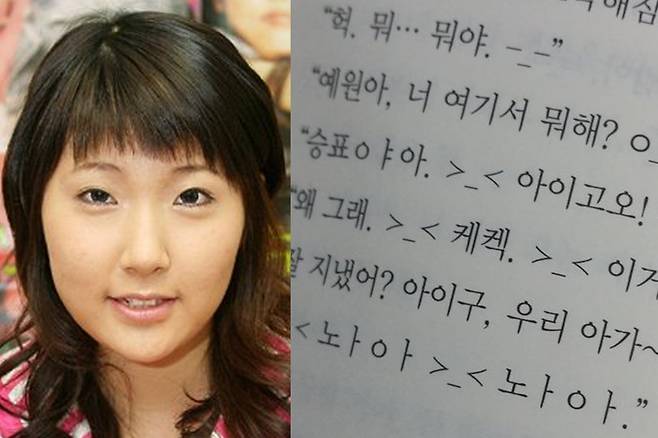 “헉. 뭐… 뭐야. -_-”
“예원아, 너 여기서 뭐해? ㅇ_
“승표ㅇㅑ아. >_< 아이고오!
“왜 그래. >_< 케켁. >_< 이거
잘 지냈어? 아이구, 우리 아가~
< 노ㅏㅇㅏ >_< 노ㅏㅇㅏ.”